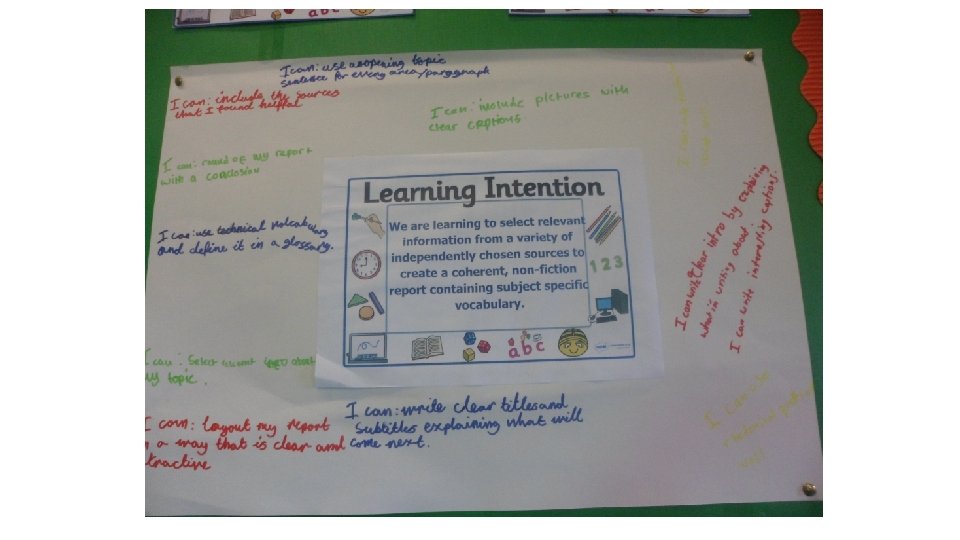 I can: use a opening topic
sentence for every area/paragraph
I can: include the sources
that I found helpful
I can: include pictures with
clear captions
I can: round of my report
with a conclusion
I can: use technical
and define it in a glossary.
Learning Intention
We are learning to select relevant
information from a variety of
independently chosen sources to
create a coherent, non-fiction
report containing subject specific
vocabulary.
1 2 3
a b c
I can write clear intro by explaining
what im writing about.
I can write interesting captions.
I can: Select
my topic.
I can: layout my report
a way that is clear and
tractive
I can: write clear titles and
subtitles explaining what will
come next.
I can use